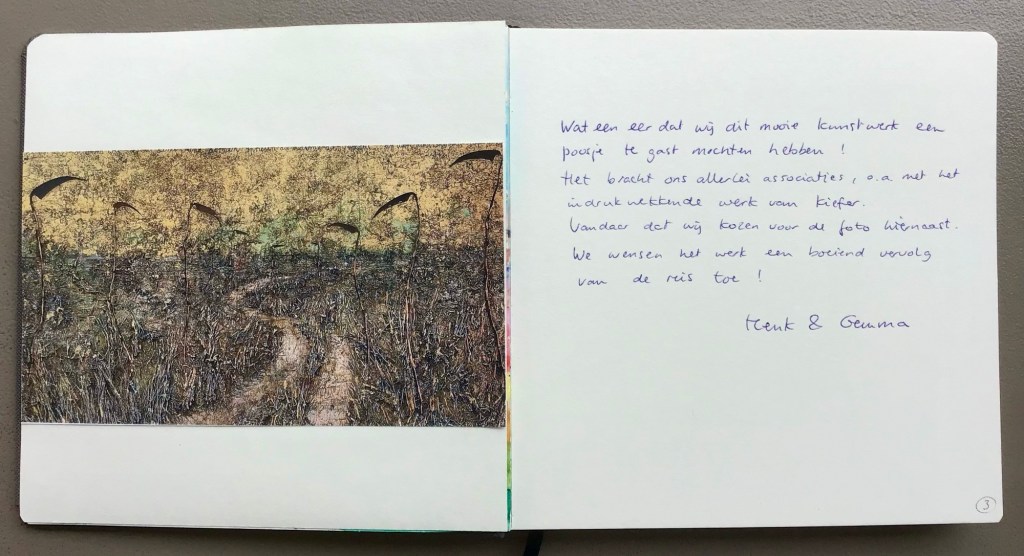 Wat een eer dat wij dit mooie kunstwerk een
poosje te gast mochten hebben !
Het bracht ons allerlei associaties, o.a met het
indrukwekkende werk van Kiefer.
Vandaar dat wij kozen voor de foto hiernaast.
We wensen het werk een boeiend vervolg
van de reis toe !
Henk & Gemma
3